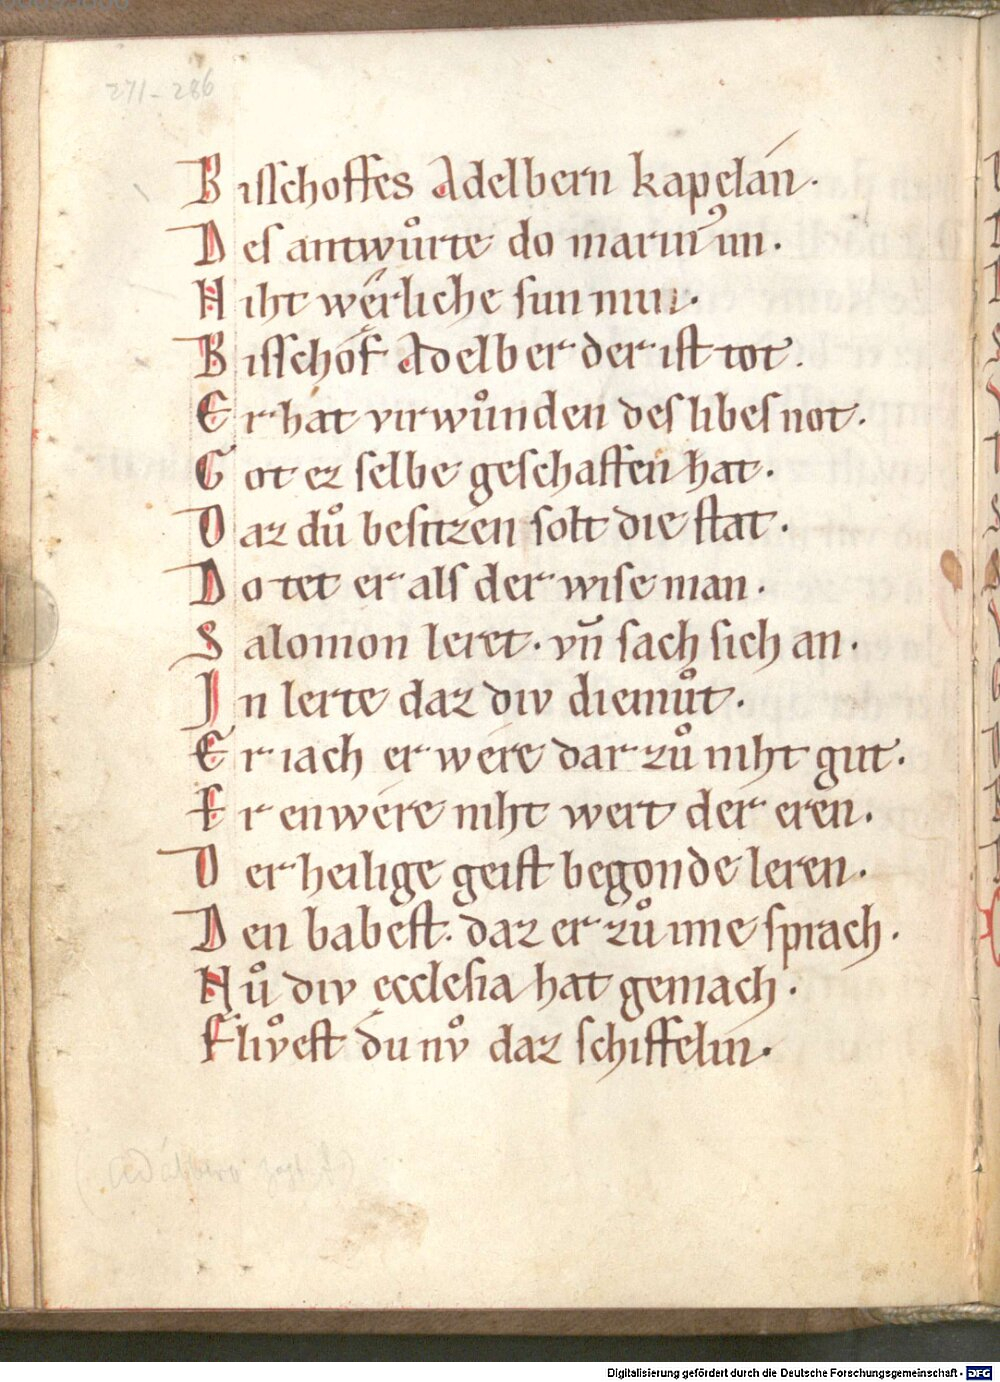 271-286
Bisschoffes Adelbern kapelán.
Des antwůrte do marin᾽ im.
Niht wérliche sun min.
Bisschóf Adelber der ist tot.
Er hat virwůnden des libes not.
Got ez selbe geschaffen hat.
Daz dů besitzen solt die stat.
Do tet er als der wise man.
Salomon leret. vn̄ sach sich an.
In lerte daz div diemůt.
Er iach er wére dar zů niht gůt.
Er enwére niht wert der eren.
Der heilige geist begonde leren.
Den babest. daz er zů ime sprach.
Nů div ecclesia hat gemach.
Flívhest du nv̊ daz schiffelin.
Digitalisierung gefördert durch die Deutsche Forschungsgemeinschaft - DFG